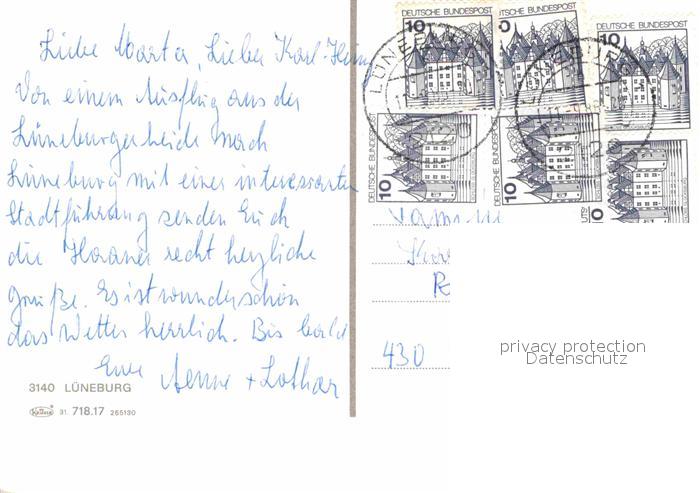 Liebe Marta, Lieber Karl-Heinz
Von einem Ausflug aus der
Lüneburgerheide nach
Lüneburg mit einer interessanten
Stadtführung senden Euch
die Haaner recht herzliche
Grüße. Es ist wunderschön
das Wetter herrlich. Bis bald
Eure Aenne + Lothar
3140 LÜNEBURG
31. 718.17 265130
DEUTSCHE BUNDESPOST
10
DEUTSCHE BUNDESPOST
10
DEUTSCHE BUNDESPOST
10
DEUTSCHE BUNDESPOST
10
DEUTSCHE BUNDESPOST
10
10
LÜNEBURG
Familie
430
privacy protection
Datenschutz